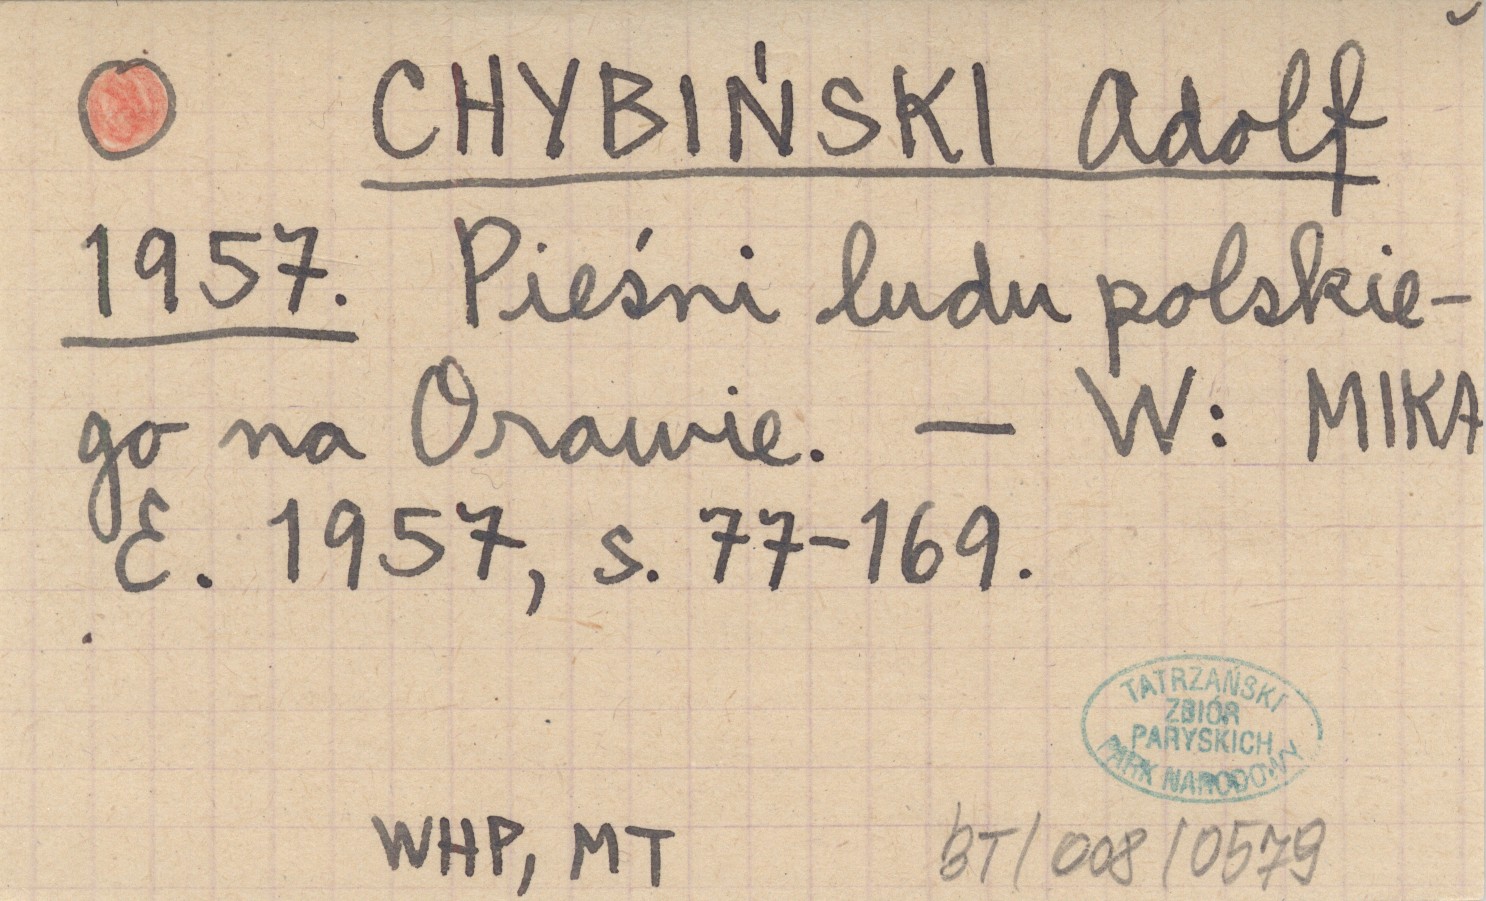 CHYBIŃSKI Adolf
1957. Pieśni ludu polskie-
go na Orawie. — W: MIKA
E. 1957, s. 77-169.
TATRZAŃSKI
ZBIÓR
PARYSKICH
PARK NARODOWY
WHP, MT
BT/008/0579